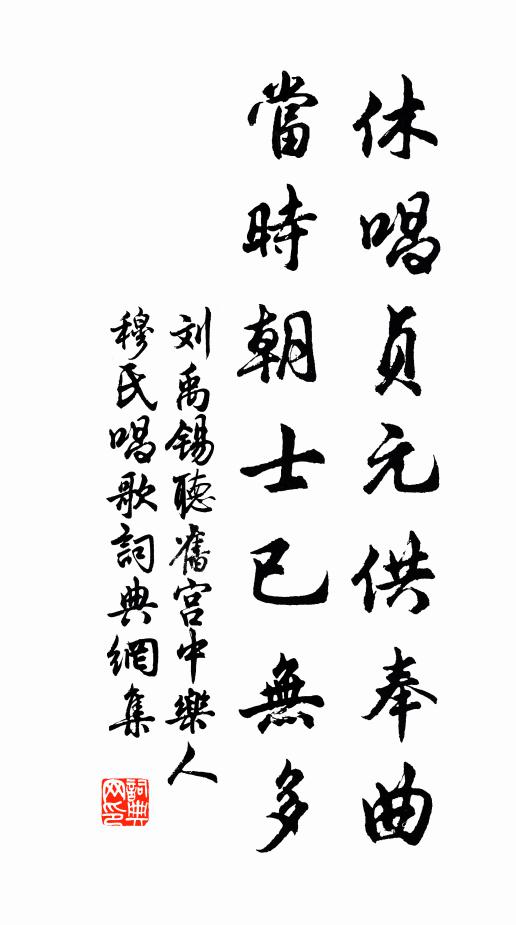 休唱贞元供奉曲
當時朝士已無多
刘禹锡聽舊宫中樂人
穆氏唱歌詞典網集
詞典網印